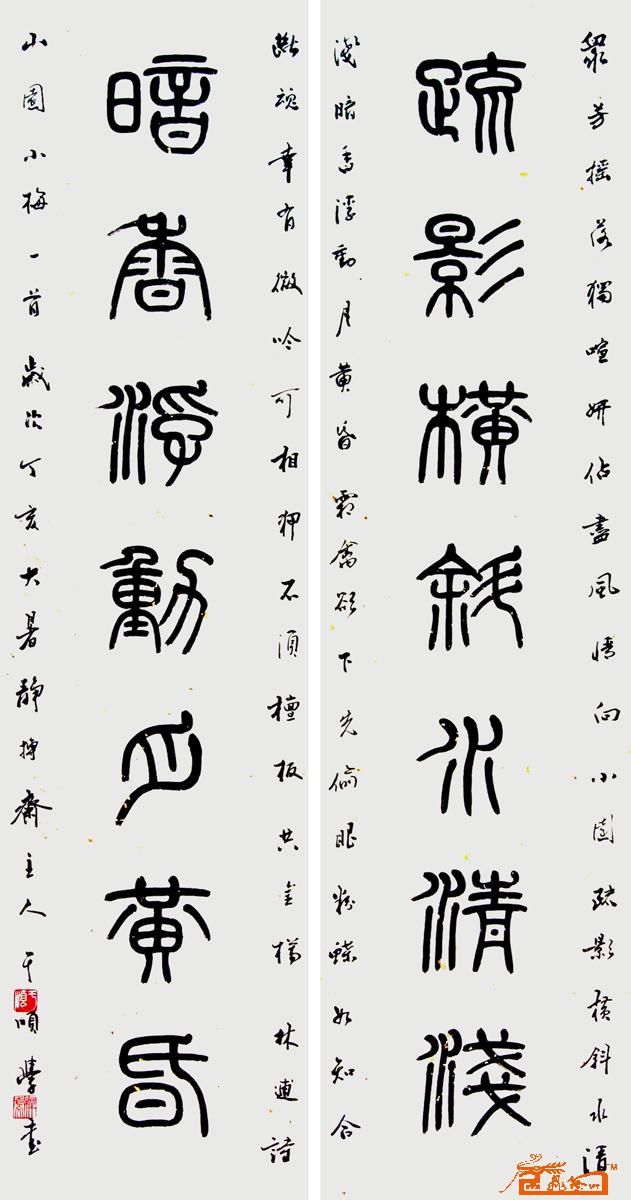 眾芳搖落獨喧妍佔盡風情向小園疏影橫斜水清
疏影橫斜水清淺
淺暗香浮動月黃昏霜禽欲下先偷眼粉蝶如知合
斷魂幸有微吟可相狎不須檀板共金樽 林逋詩
暗香浮動月黃昏
山園小梅一首歲次丁亥大暑靜 齋主人 書